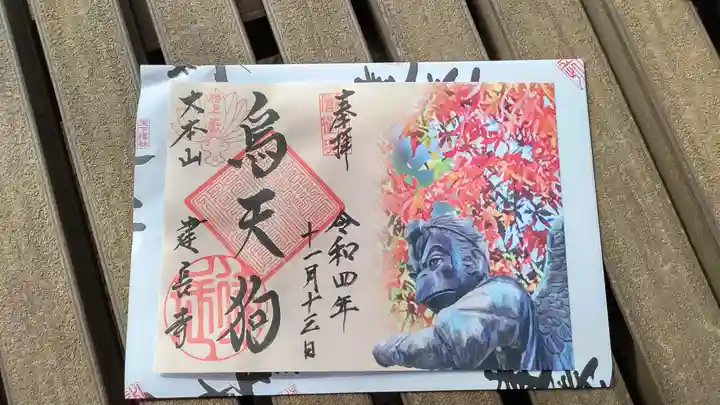 奉拝
令和四年
十一月十三日
烏天狗
大本山 建長寺